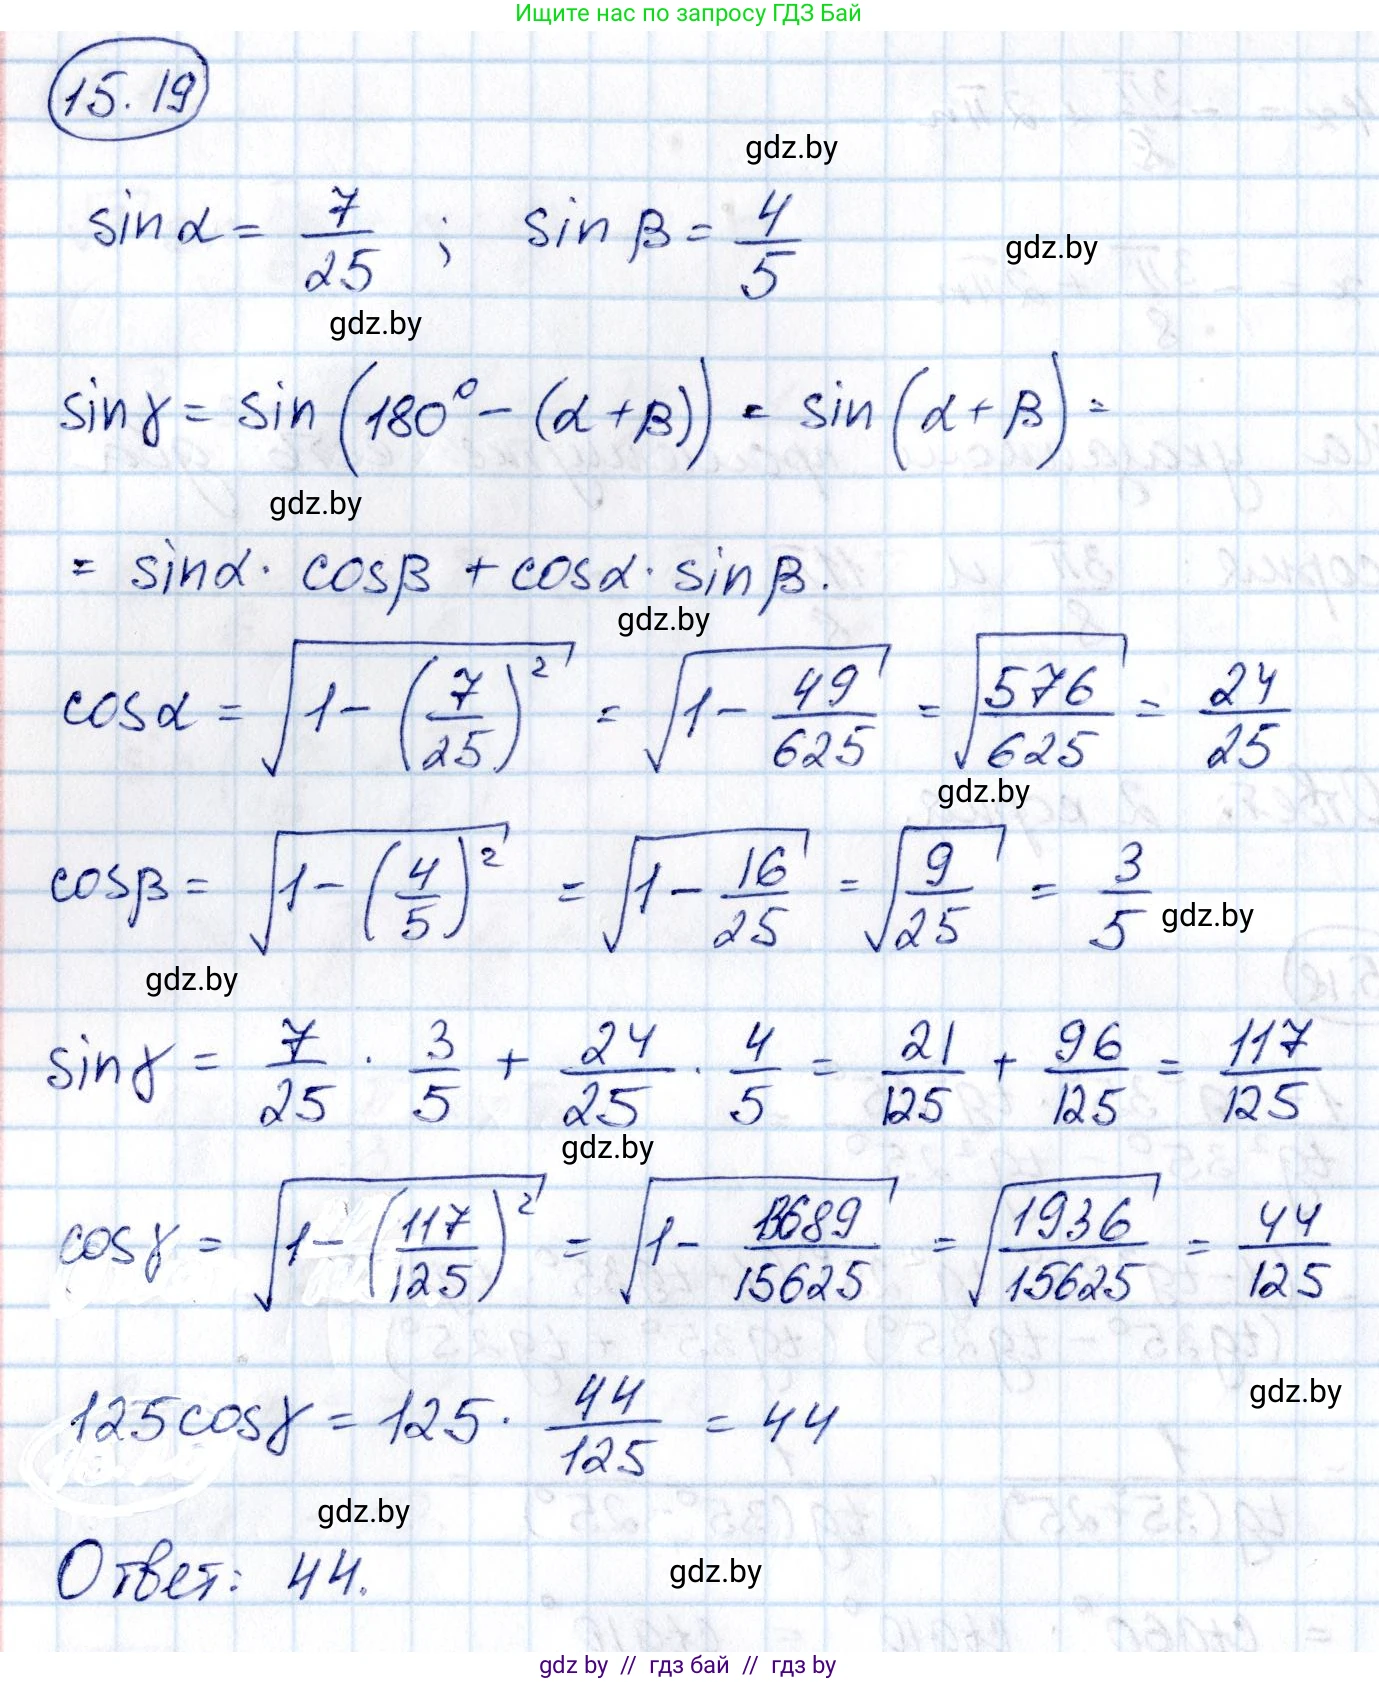 Ищите нас по запросу ГДЗ Бай
15.19
gdz.by
sin α = 7/25 ; sin β = 4/5
gdz.by
gdz.by
sin γ = sin (180° - (α + β)) = sin (α + β) =
gdz.by
= sin α · cos β + cos α · sin β.
gdz.by
cos α = √(1 - (7/25)²) = √(1 - 49/625) = √(576/625) = 24/25
gdz.by
cos β = √(1 - (4/5)²) = √(1 - 16/25) = √(9/25) = 3/5
gdz.by
gdz.by
sin γ = 7/25 · 3/5 + 24/25 · 4/5 = 21/125 + 96/125 = 117/125
gdz.by
cos γ = √(1 - (117/125)²) = √(1 - 13689/15625) = √(1936/15625) = 44/125
gdz.by
125 cos γ = 125 · 44/125 = 44
gdz.by
Ответ: 44.
gdz.by
gdz by // гдз бай // гдз by